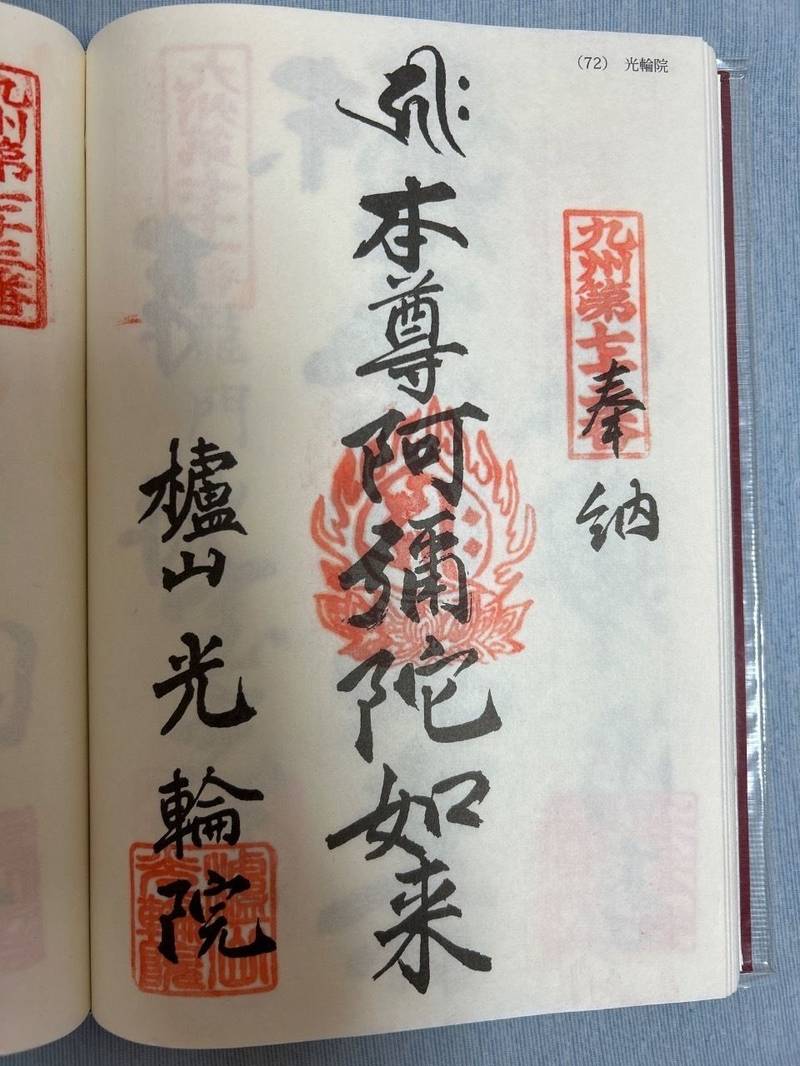 (72) 光輪院
九州第七十二番
奉納
本尊阿彌陀如来
櫨山 光輪院
九州第七十三番